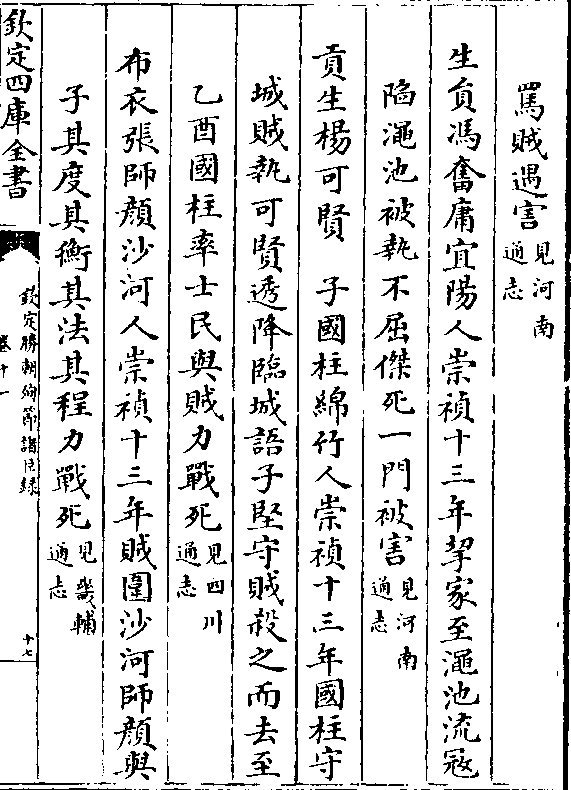 罵賊遇害見河南通志
生員馮奮庸宜陽人崇禎十三年挈家至澠池流冦
陷澠池被執不屈傑死一門被害見河南通志
貢生楊可賢　子國柱綿竹人崇禎十三年國柱守
城賊執可賢透降臨城語子堅守賊殺之而去至
乙酉國柱率士民與賊力戰死見四川通志
布衣張師顔沙河人崇禎十三年賊圍沙河師顔與
子其度其衡其法其程力戰死見畿輔通志
欽定四庫全書
欽定勝朝殉節諸臣録
卷十一
十七